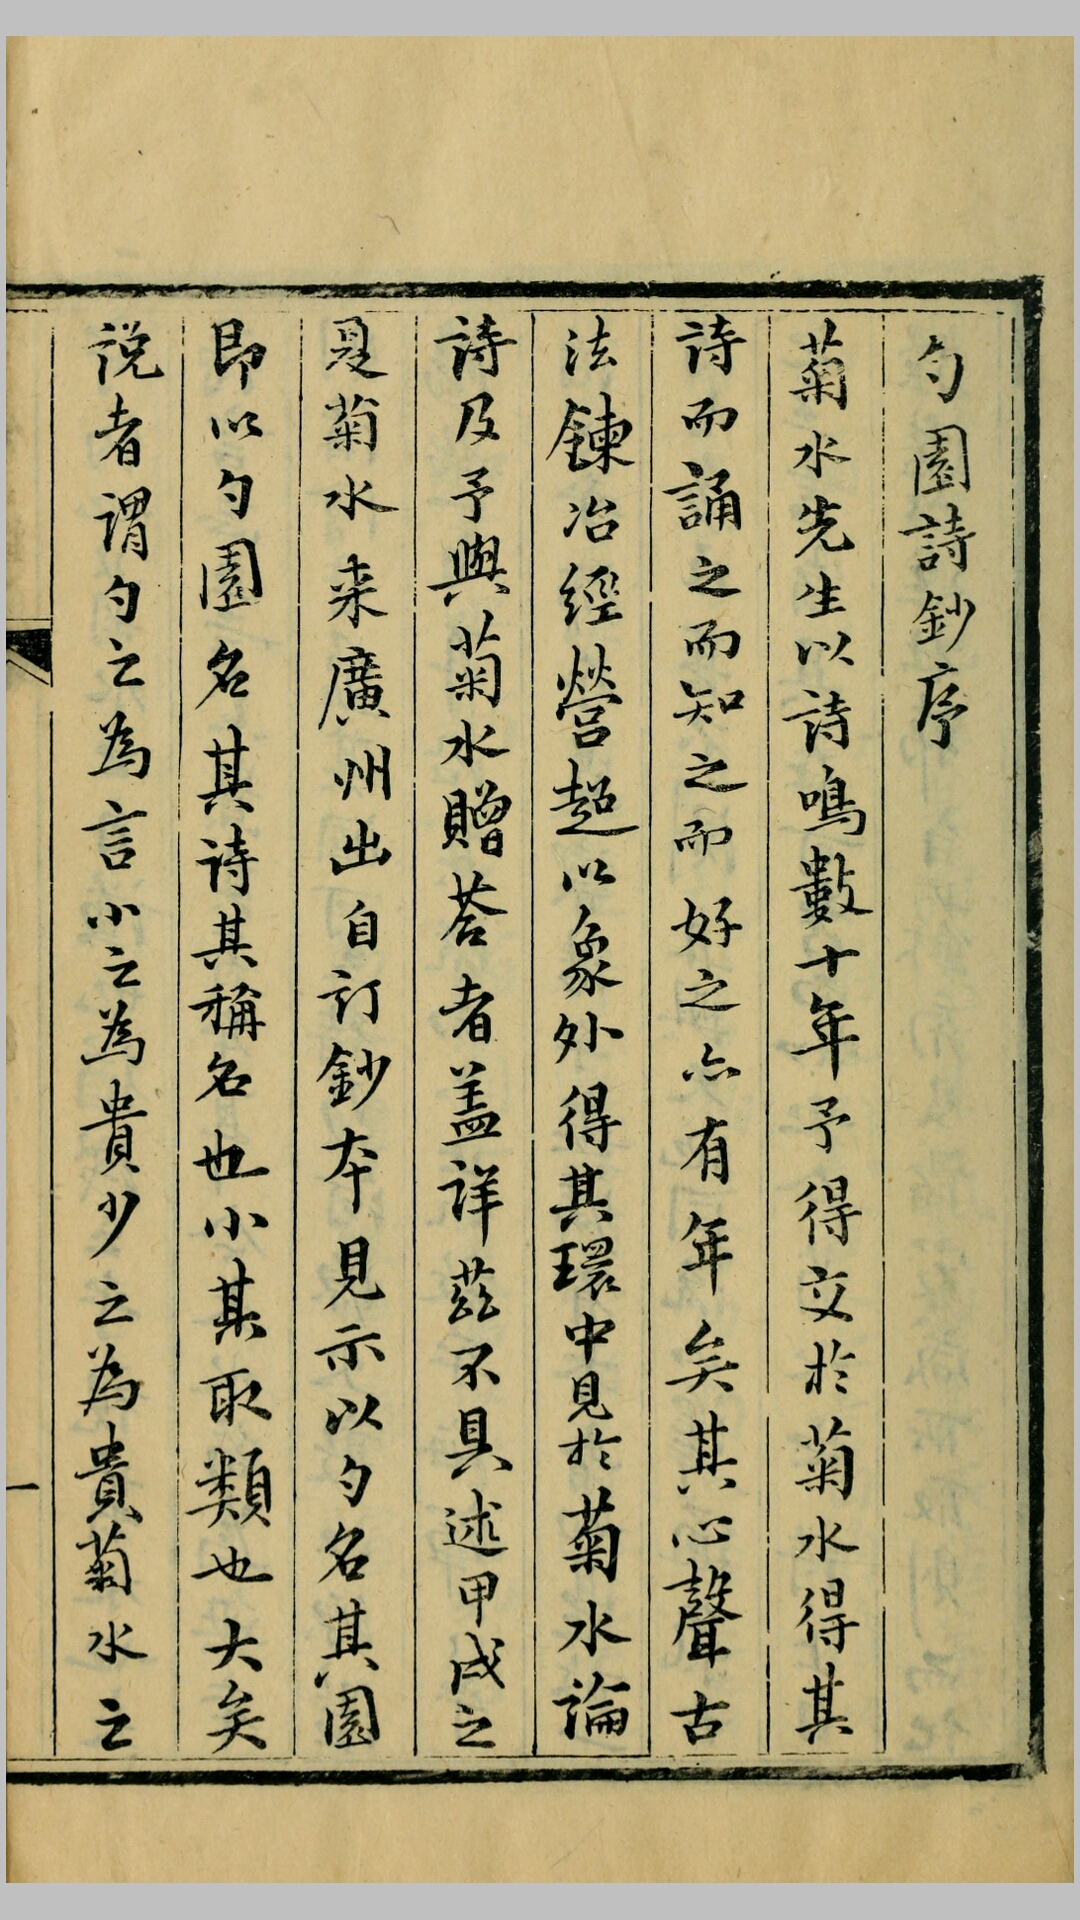 勺園詩鈔序
菊水先生以詩鳴數十年予得交於菊水得其
詩而誦之而知之而好之亦有年矣其心聲古
法鍊冶經營超以象外得其環中見於菊水論
詩及予與菊水贈荅者盖詳茲不具述甲戌之
夏菊水来廣州出自訂鈔本見示以勺名其園
即以勺園名其詩其稱名也小其取類也大矣
説者謂勺之為言小之為貴少之為貴菊水之
一